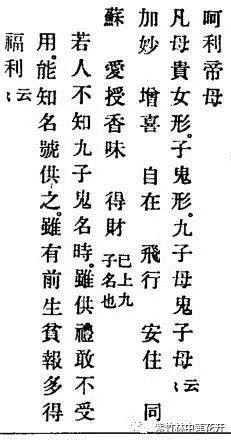 呵利帝母
凡母貴女形。子鬼形。九子母鬼子母云〻
加妙　增喜　自在　飛行　安住　同
蘇　愛授香味　得財　已上九子名也
若人不知九子鬼名時。雖供禮敢不受
用。能知名號供之。雖有前生貧報多得
福利云〻
紫竹林中莲花开